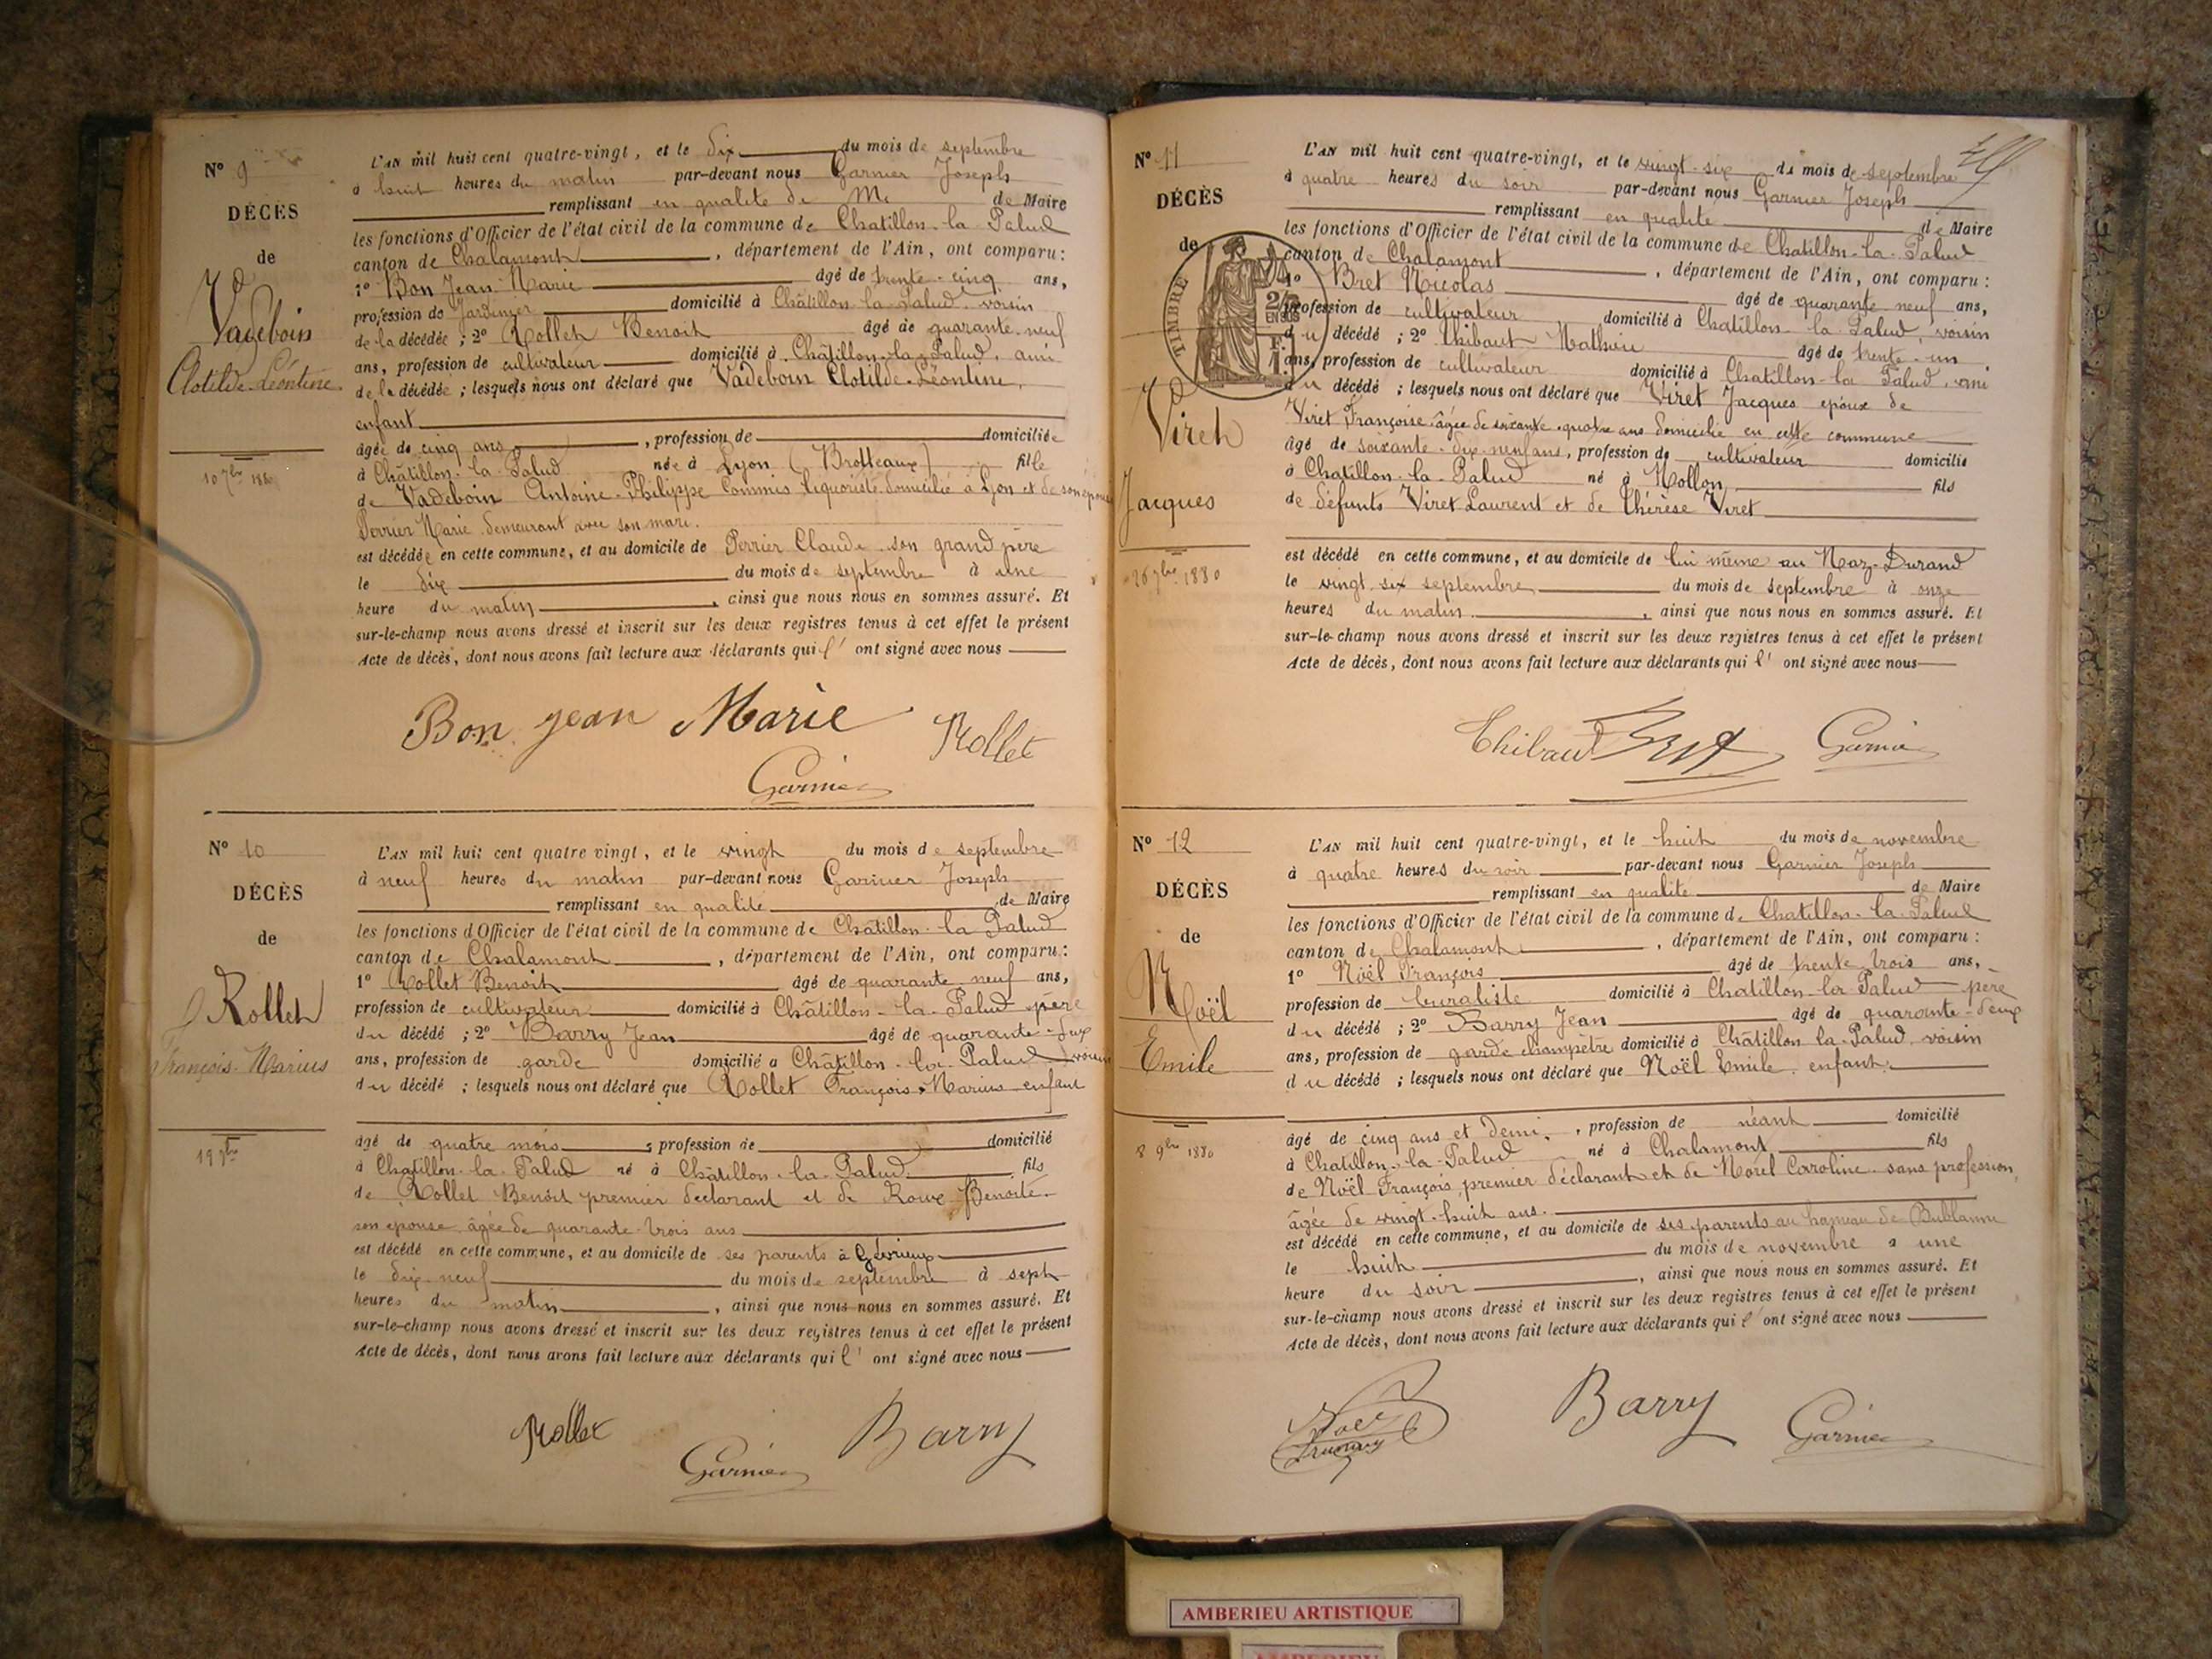 N° 9
DÉCÈS
de
Vadeboin
Clotilde-Léontine
10 7bre 1880
L'AN mil huit cent quatre-vingt, et le dix du mois de septembre
à huit heures du matin par-devant nous Garnier Joseph
remplissant en qualité de M. de Maire
les fonctions d'Officier de l'état civil de la commune de Chatillon-la-Palud
canton de Chalamont, département de l'Ain, ont comparu:
1° Bon Jean-Marie âgé de trente-cinq ans,
profession de Jardinier domicilié à Châtillon-la-Palud voisin
de la décédée; 2° Rollet Benoit âgé de quarante-neuf
ans, profession de cultivateur domicilié à Châtillon-la-Palud, ami
de la décédée; lesquels nous ont déclaré que Vadeboin Clotilde-Léontine,
enfant
âgée de cinq ans, profession de domiciliée
à Châtillon-la-Palud née à Lyon (Brotteaux) fille
de Vadeboin Antoine-Philippe Commis liquoriste domicilié à Lyon et de son épouse
Perrier Marie demeurant avec son mari.
est décédée en cette commune, et au domicile de Perrier Claude son grand père
le dix du mois de septembre à une
heure du matin, ainsi que nous nous en sommes assuré. Et
sur-le-champ nous avons dressé et inscrit sur les deux registres tenus à cet effet le présent
Acte de décès, dont nous avons fait lecture aux déclarants qui l' ont signé avec nous
Bon jean Marie Rollet
Garnier
N° 10
DÉCÈS
de
Rollet
François-Marius
19 7bre
L'AN mil huit cent quatre vingt, et le vingt du mois de septembre
à neuf heures du matin par-devant nous Garnier Joseph
remplissant en qualité de Maire
les fonctions d'Officier de l'état civil de la commune de Châtillon-la-Palud
canton de Chalamont, département de l'Ain, ont comparu:
1° Rollet Benoit âgé de quarante neuf ans,
profession de cultivateur domicilié à Châtillon-la-Palud père
du décédé; 2° Barry Jean âgé de quarante-deux
ans, profession de garde domicilié à Châtillon-la-Palud voisin
du décédé; lesquels nous ont déclaré que Rollet François-Marius enfant
âgé de quatre mois, profession de domicilié
à Chatillon-la-Palud né à Châtillon-la-Palud fils
de Rollet Benoit premier déclarant et de Roux Benoite
son épouse âgée de quarante-trois ans
est décédé en cette commune, et au domicile de ses parents à Gévrieux
le dix-neuf du mois de septembre à sept
heures du matin, ainsi que nous nous en sommes assuré. Et
sur-le-champ nous avons dressé et inscrit sur les deux registres tenus à cet effet le présent
Acte de décès, dont nous avons fait lecture aux déclarants qui l' ont signé avec nous
Rollet Garnier Barry
N° 11
DÉCÈS
de
Viret
Jacques
26 7bre 1880
TIMBRE
L'AN mil huit cent quatre-vingt, et le vingt-six du mois de septembre
à quatre heures du soir par-devant nous Garnier Joseph
remplissant en qualité de Maire
les fonctions d'Officier de l'état civil de la commune de Chatillon-la-Palud
canton de Chalamont, département de l'Ain, ont comparu:
1° Bret Nicolas âgé de quarante neuf ans,
profession de cultivateur domicilié à Chatillon-la-Palud, voisin
du décédé; 2° Thibaut Mathieu âgé de trente-un
ans, profession de cultivateur domicilié à Chatillon-la-Palud, ami
du décédé; lesquels nous ont déclaré que Viret Jacques époux de
Viret Françoise âgée de soixante-quatre ans domicilié en cette commune
âgé de soixante-dix-neuf ans, profession de cultivateur domicilié
à Chatillon-la-Palud né à Mollon fils
de défunts Viret Laurent et de Thérèse Viret
est décédé en cette commune, et au domicile de lui même au Maz-Durand
le vingt-six septembre du mois de septembre à onze
heures du matin, ainsi que nous nous en sommes assuré. Et
sur-le-champ nous avons dressé et inscrit sur les deux registres tenus à cet effet le présent
Acte de décès, dont nous avons fait lecture aux déclarants qui l' ont signé avec nous
Thibaut Bret Garnier
N° 12
DÉCÈS
de
Noël
Emile
8 9bre 1880
L'AN mil huit cent quatre-vingt, et le huit du mois de novembre
à quatre heures du soir par-devant nous Garnier Joseph
remplissant en qualité de Maire
les fonctions d'Officier de l'état civil de la commune de Chatillon-la-Palud
canton de Chalamont, département de l'Ain, ont comparu:
1° Noël François âgé de trente-trois ans,
profession de buraliste domicilié à Chatillon-la-Palud père
du décédé; 2° Barry Jean âgé de quarante-deux
ans, profession de garde champêtre domicilié à Châtillon-la-Palud, voisin
du décédé; lesquels nous ont déclaré que Noël Emile, enfant
âgé de cinq ans et demi, profession de néant domicilié
à Chatillon-la-Palud né à Chalamont fils
de Noël François, premier déclarant et de Morel Caroline sans profession,
âgée de vingt-huit ans.
est décédé en cette commune, et au domicile de ses parents au hameau de Bublanne
le huit du mois de novembre à une
heure du soir, ainsi que nous nous en sommes assuré. Et
sur-le-champ nous avons dressé et inscrit sur les deux registres tenus à cet effet le présent
Acte de décès, dont nous avons fait lecture aux déclarants qui l' ont signé avec nous
Noel Barry Garnier
AMBERIEU ARTISTIQUE
AMBERIEU